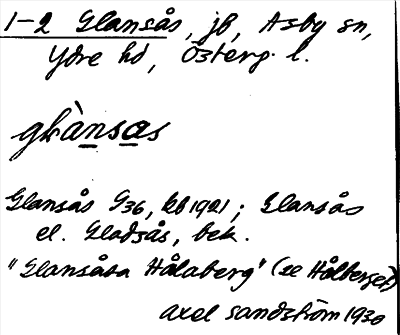 1-2 Glansås, jb, Asby sn,
Ydre hd, Österg. l.
glànsas
Glansås G36, kb 1921; Glansås
el. Gladsås, bek.
"Glansåsa Hålaberg" (se Hålberget)
Axel Sandström 1930